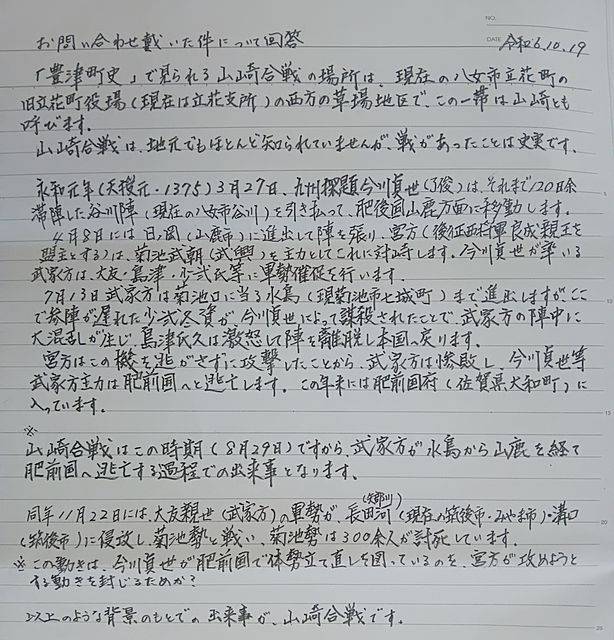 NO.
DATE 令和6.10.19
お問い合わせ戴いた件について回答
「豊津町史」で見られる山崎合戦の場所は、現在の八女市立花町の
旧立花町役場(現在は立花支所)の西方の草場地区で、この一帯は山崎とも
呼びます。
山崎合戦は、地元でもほとんど知られていませんが、戦があったことは史実です。
永和元年(天授元・1375)3月27日、九州探題今川貞世(了俊)は、それまで120日余
滞陣した谷川陣(現在の八女市谷川)を引き払って、肥後国山鹿方面に移動します。
4月8日には日岡(山鹿市)に進出して陣を張り、宮方(後征西将軍良成親王を
盟主とする)は、菊池武朝(武興)を主力としてこれに対峙します。今川貞世が率いる
武家方は、大友・島津・少弐氏等に軍勢催促を行います。
7月13日武家方は菊池口に当る水島(現菊池市七城町)まで進出しますが、ここ
で参陣が遅れた少弐冬資が、今川貞世によって謀殺されたことで、武家方の陣中に
大混乱が生じ、島津氏久は激怒して陣を離脱し本国へ戻ります。
宮方はこの機を逃がさずに攻撃したことから、武家方は惨敗し、今川貞世等
武家方主力は肥前国へと逃亡します。この年末には肥前国府(佐賀県大和町)に
入っています。
※
山崎合戦はこの時期(8月29日)ですから、武家方が水島から山鹿を経て
肥前国へ逃亡する過程での出来事となります。
(矢部川)
同年11月22日には、大友親世(武家方)の軍勢が、長田河(現在の筑後市・みやま市)・溝口
(筑後市)に侵攻し菊池勢と戦い、菊池勢は300余人が討死しています。
※この動きは、今川貞世が肥前国で体勢立て直しを図っているのを、宮方が攻めようと
する動きを封じるためか?
以上のような背景のもとでの出来事が、山崎合戦です。
10
15
20
25